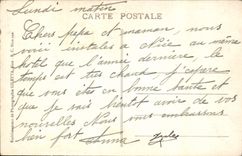 Lundi matin
CARTE POSTALE
Chers papa et maman, nous
voici installés à Nice au même
hôtel que l'année dernière, le
temps est très chaud j'espère
que vous êtes en bonne santé et
que je vais bientôt avoir de vos
nouvelles Nous vous embrassons
bien fort